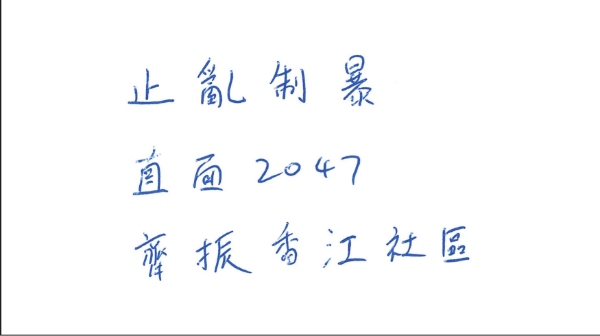 止亂制暴
直面2047
齊振香江社區